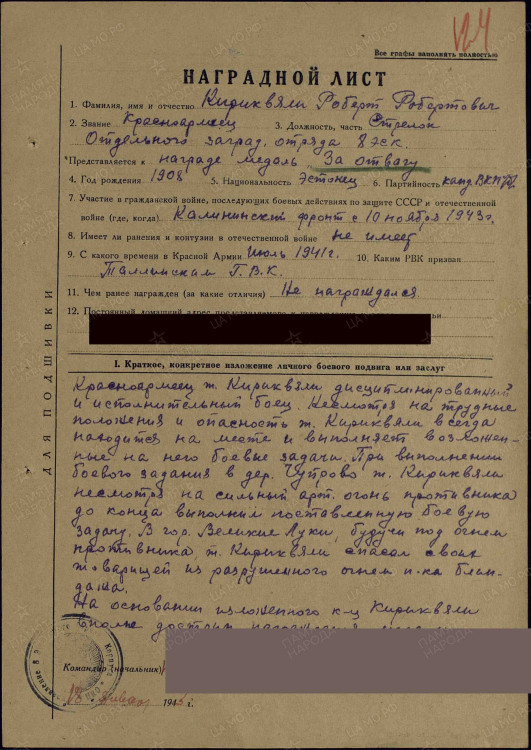 Все графы заполнять полностью
НАГРАДНОЙ ЛИСТ
1. Фамилия, имя и отчество Кириквяли Роберт Робертович
2. Звание Красноармеец 3. Должность, часть Стрелок
Отдельного заград. отряда 8 ЭСК.
Представляется к награде медаль "За отвагу"
4. Год рождения 1908 5. Национальность Эстонец 6. Партийность канд. ВКП(б)
7. Участие в гражданской войне, последующих боевых действиях по защите СССР и отечественной
войне (где, когда) Калининский фронт с 10 ноября 1943 г.
8. Имеет ли ранения и контузии в отечественной войне не имеет
9. С какого времени в Красной Армии Июль 1941 г. 10. Каким РВК призван
Таллинским Г.В.К.
11. Чем ранее награжден (за какие отличия) Не награждался
12. Постоянный домашний адрес
ДЛЯ ПОДШИВКИ
I. Краткое, конкретное изложение личного боевого подвига или заслуг
Красноармеец т. Кириквяли дисциплинированный
и исполнительный боец. Несмотря на трудные
положения и опасность т. Кириквяли всегда
находится на месте и выполняет возложен-
ные на него боевые задачи. При выполнении
боевого задания в дер. Чутрово т. Кириквяли
несмотря на сильный арт. огонь противника
до конца выполним поставленную боевую
задачу. В гор. Великие Луки, будучи под огнем
противника т. Кириквяли спасал своих
товарищей из разрушенного огнем п-ка блин-
дажа.
На основании изложенного к-ц Кириквяли
вполне достоин
Командир (начальник)
18 января 194 г.